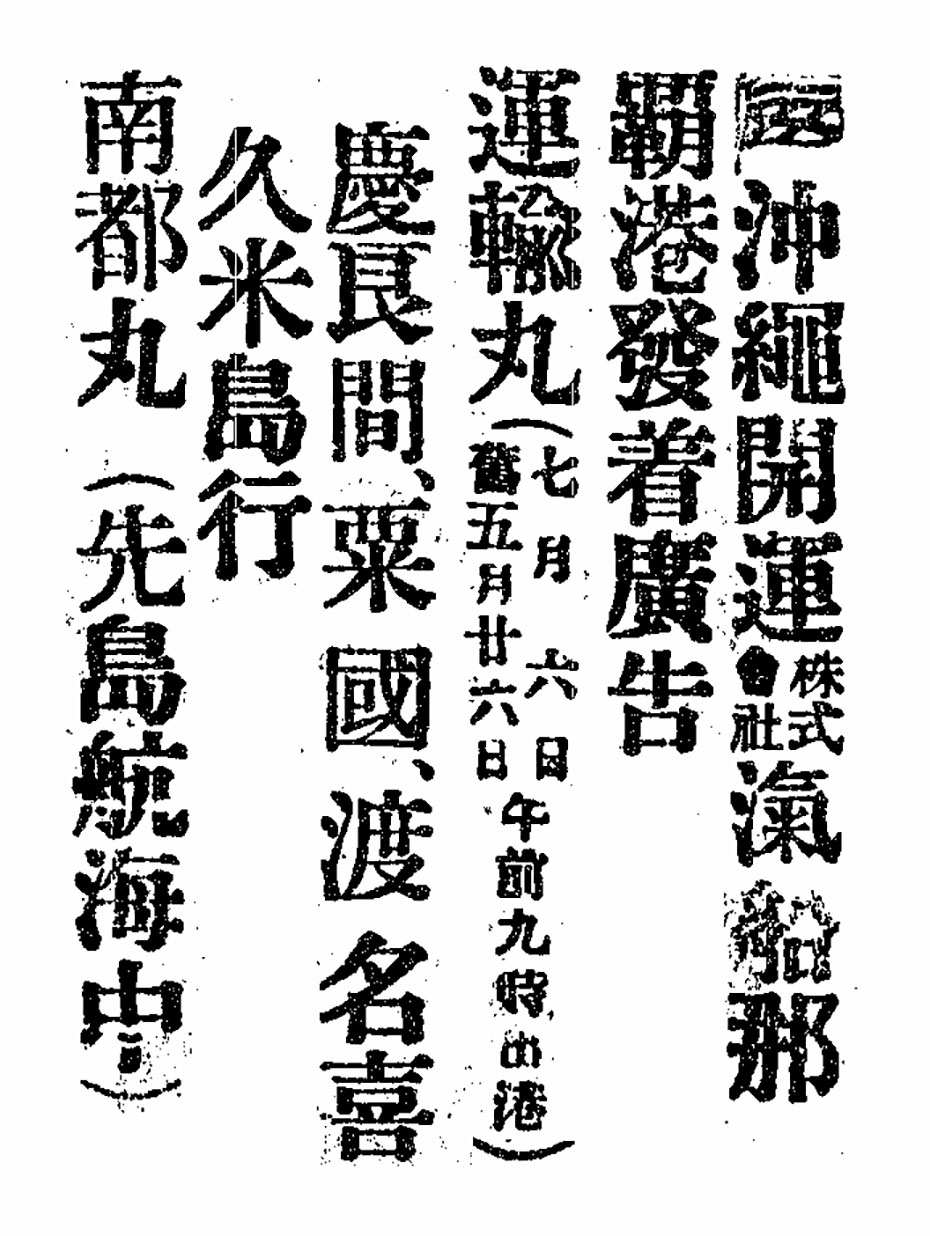 沖繩開運株式會社滊船那
覇港發着廣告
運輸丸(七月六日舊五月廿六日午前九時出港)
慶良間、粟國、渡名喜
久米島行
南都丸(先島航海中)